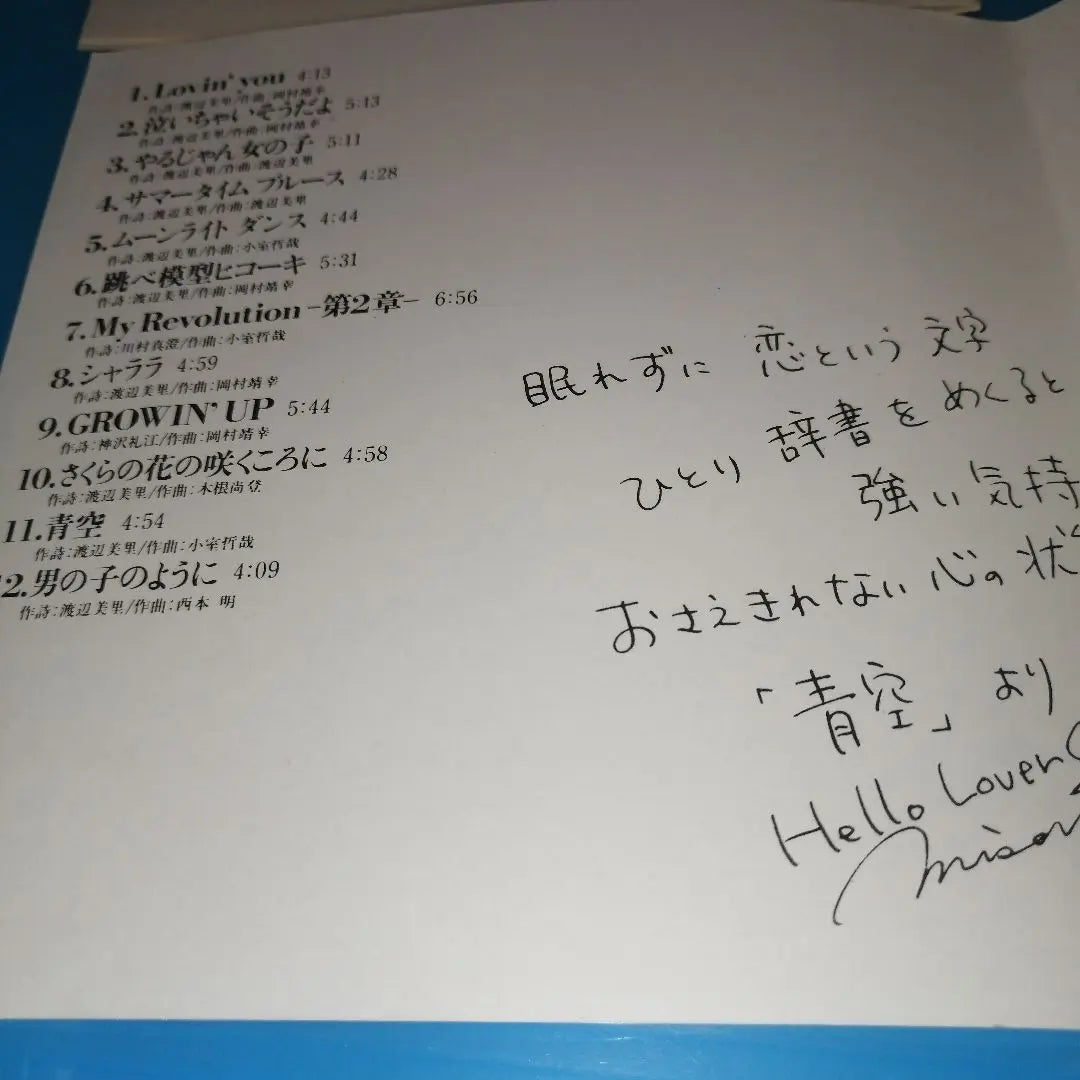 1. Lovin' you 4:13
作詩:渡辺美里/作曲:岡村靖幸
2. 泣いちゃいそうだよ 5:13
作詩:渡辺美里/作曲:岡村靖幸
3. やるじゃん女の子 5:11
作詩:渡辺美里/作曲:渡辺美里
4. サマータイム ブルース 4:28
作詩:渡辺美里/作曲:渡辺美里
5. ムーンライト ダンス 4:44
作詩:渡辺美里/作曲:小室哲哉
6. 跳べ模型ヒコーキ 5:31
作詩:渡辺美里/作曲:岡村靖幸
7. My Revolution –第2章– 6:56
作詩:川村真澄/作曲:小室哲哉
8. シャララ 4:59
作詩:渡辺美里/作曲:岡村靖幸
9. GROWIN' UP 5:44
作詩:神沢礼江/作曲:岡村靖幸
10. さくらの花の咲くころに 4:58
作詩:渡辺美里/作曲:木根尚登
11. 青空 4:54
作詩:渡辺美里/作曲:小室哲哉
2. 男の子のように 4:09
作詩:渡辺美里/作曲:西本 明
眠れずに 恋という 文字
ひとり 辞書を めくると
強い気持
おさえきれない 心の 状
「青空」より
Hello Lovers
misa